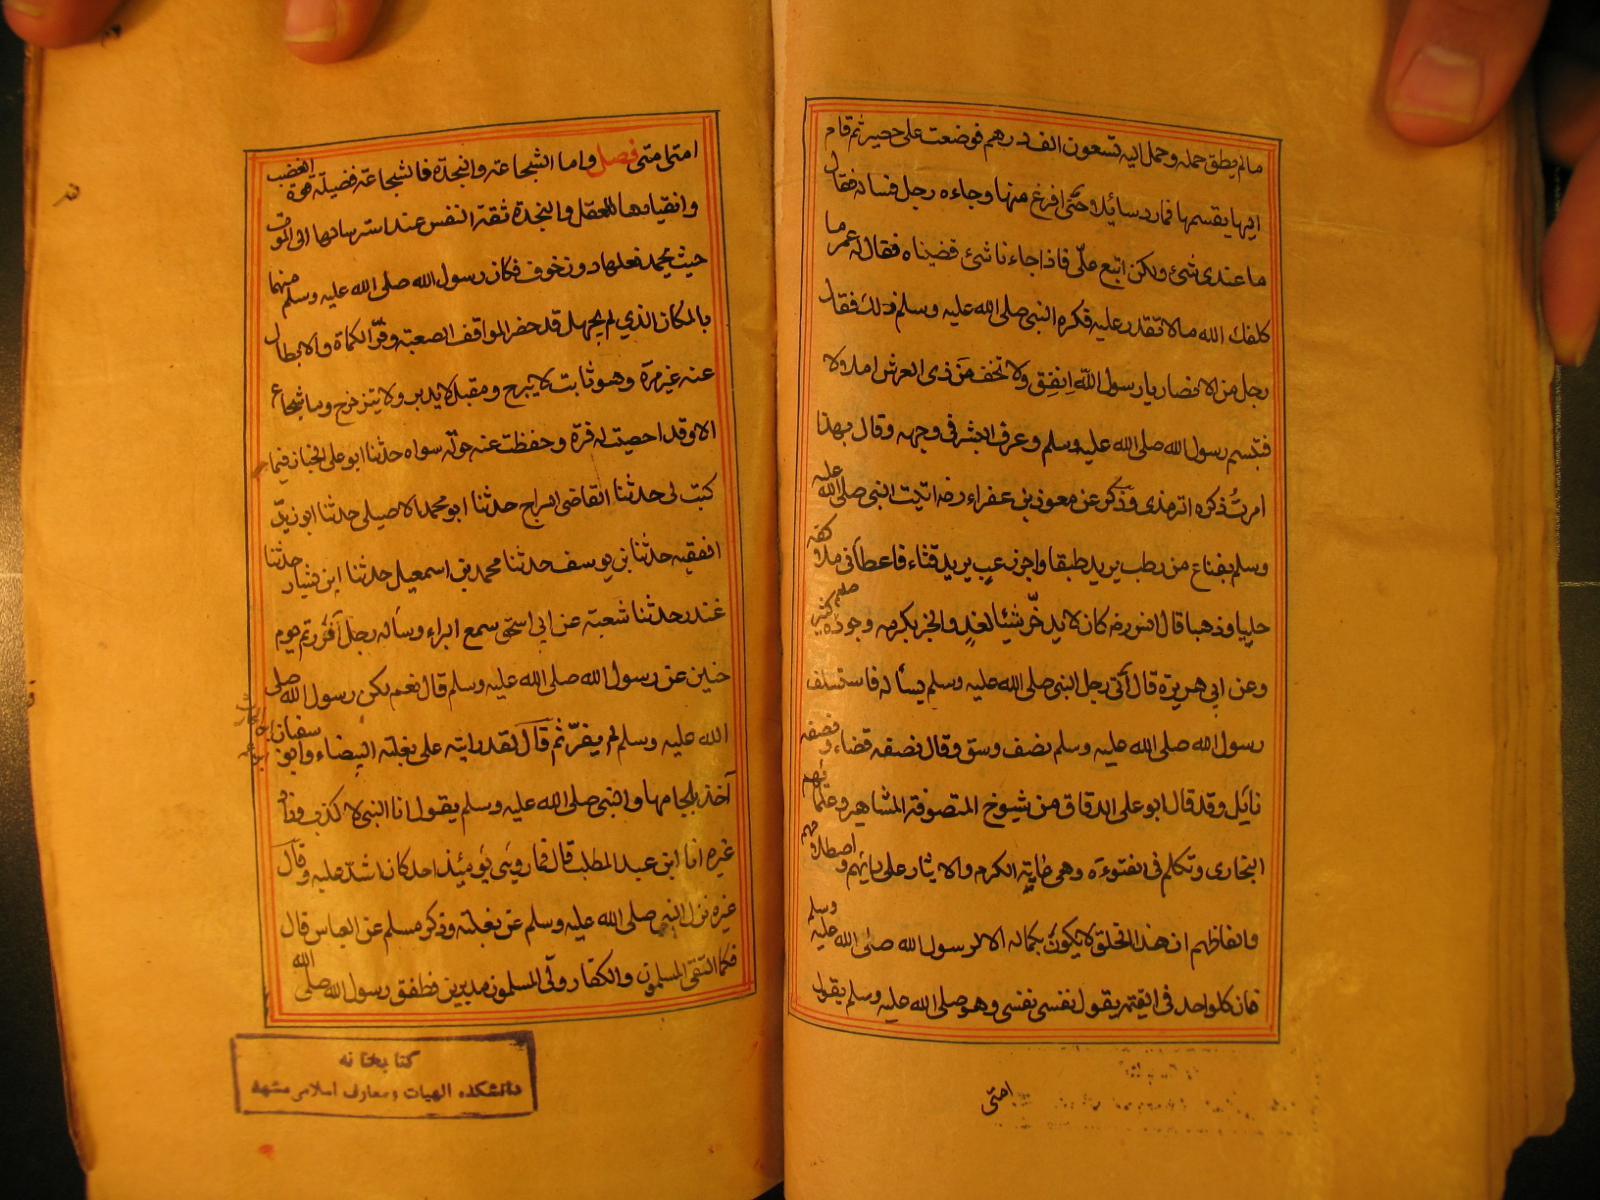 مالم يطق حمله وحمل اليه تسعون الف درهم فوضعت على حصير ثم قام
اليها يقسمها فما رد سائلا حتى افرغ منها وجاءه رجل فساله فقال
ما عندى شئ ولكن اتبع علىّ فاذا جاءنا شئ قضيناه فقال له عمر ما
كلفك الله مالا تقدر عليه فكره النبى صلى الله عليه وسلم ذلك فقال
رجل من الانصار يا رسول الله انفِق ولا تخف من ذى العرش املالا
فتبسم رسول الله صلى الله عليه وسلم وعرف البشر فى وجهه وقال بهذا
امرتُ ذكره الترمذى وذكر عن معوذ بن عفراء رضه اتيت النبى صلى الله عليه
وسلم بقناع من رطب يريد طبقا واجرٍ زغب يريد قثاء فاعطانى ملأ كفه
حليا وذهبا قال انس رضه كان لا يدخّر شيئا لغدٍ والخبر بكرمه وجوده صلعم كثير
وعن ابى هريرة قال أتى رجل النبى صلى الله عليه وسلم يسأله فاستسلف
رسول الله صلى الله عليه وسلم نصف وسق وقال نصفه قضاء ونصفه
نائل وقد قال ابو على الدقاق من شيوخ المتصوفة المشاهير وعلمائهم
البخارى وتكلم فى الفتوءة وهى غاية الكرم والايثار على رائهم واصطلاحهم
والفاظهم ان هذا الخلق لا يكون بكماله الا لرسول الله صلى الله عليه وسلم
فان كلواحد فى القيمة يقول نفسى نفسى وهو صلى الله عليه وسلم يقول
امتى
امتى امتى فصل واما الشجاعة والنجدة فالشجاعة فضيلة قوة الغضب
وانقيادها للعقل والنجدة ثقة النفس عند استرسالها الى الموت
حيث يحمد فعلها دون خوف فكان رسول الله صلى الله عليه وسلم منهما
بالمكان الذي لم يجهل قد حضر المواقف الصعبة وفرّ الكماة والابطال
عنه غير مرة وهو ثابت لا يبرح ومقبل لا يدبر ولا يتزحزح وما شجاع
الا وقد احصيت له فرة وحفظت عنه جولة سواه حدثنا ابو على الجياز فيما
كتب لى حدثنا القاضى السراج حدثنا ابو محمد الاصيلى حدثنا ابو زيد
الفقيه حدثنا بن يوسف حدثنا محمد بن اسمعيل حدثنا ابن بشار حدثنا
غندر حدثنا شعبة عن ابى اسحق سمع البراء وسأله رجل أفررتم يوم
حنين عن رسول الله صلى الله عليه وسلم قال نعم لكن رسول الله صلى
الله عليه وسلم لم يفرّ ثم قال لقد رايته على بغلته البيضاء وابو سفيان
آخذ بلجامها والنبى صلى الله عليه وسلم يقول انا النبى لا كذب وزاد
غيره انا ابن عبد المطلب قال فما رويى يومئذ احد كان اشد عليه وقال
غيره نزل النبى صلى الله عليه وسلم عن بغلته وذكر مسلم عن العباس قال
فلما التقى المسلمون والكفار ولّى المسلمون مدبرين فطفق رسول الله صلى الله
كتابخانه
دانشكده الهيات ومعارف اسلامى مشهد